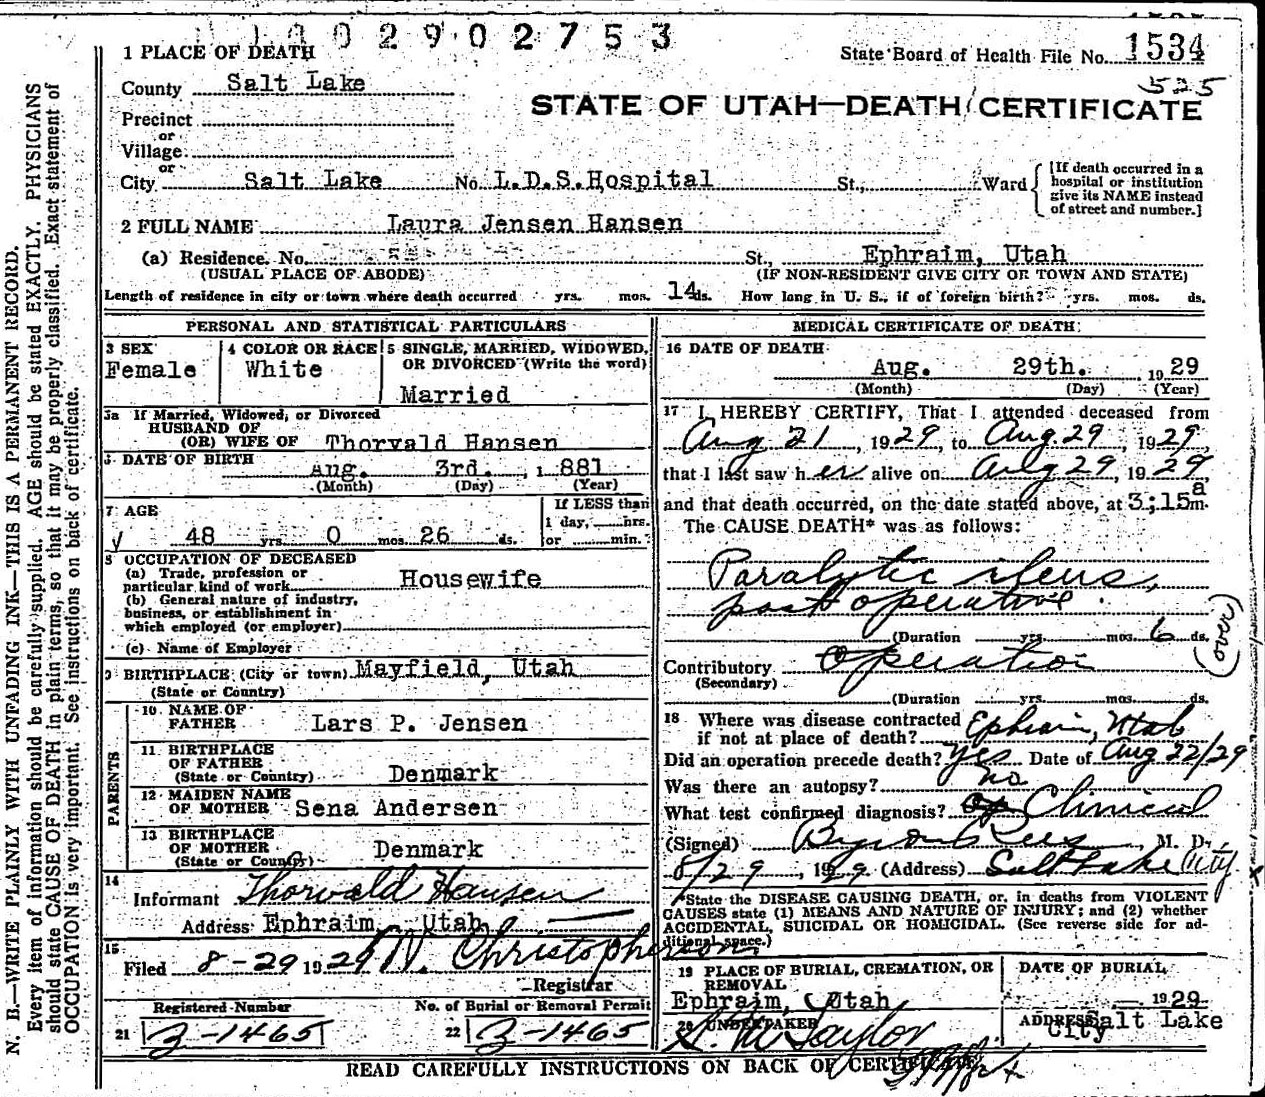 0 0 2 9 0 2 7 5 3
1 PLACE OF DEATH
State Board of Health File No. 1534
County Salt Lake
525
STATE OF UTAH—DEATH CERTIFICATE
Precinct
or
Village
or
City Salt Lake No. L.D.S.Hospital St., Ward
[If death occurred in a hospital or institution give its NAME instead of street and number.]
2 FULL NAME Laura Jensen Hansen
(a) Residence. No. St., Ephraim, Utah
(USUAL PLACE OF ABODE) (IF NON-RESIDENT GIVE CITY OR TOWN AND STATE)
Length of residence in city or town where death occurred yrs. mos. 14 ds. How long in U. S., if of foreign birth? yrs. mos. ds.
PERSONAL AND STATISTICAL PARTICULARS
3 SEX
Female
4 COLOR OR RACE
White
5 SINGLE, MARRIED, WIDOWED,
OR DIVORCED (Write the word)
Married
5a If Married, Widowed, or Divorced
HUSBAND OF
(OR) WIFE OF Thorvald Hansen
6 DATE OF BIRTH
Aug. 3rd. , 1 881
(Month) (Day) (Year)
7 AGE
48 yrs. 0 mos. 26 ds.
If LESS than
1 day, hrs.
or min.?
8 OCCUPATION OF DECEASED
(a) Trade, profession or
particular kind of work Housewife
(b) General nature of industry,
business, or establishment in
which employed (or employer)
(c) Name of Employer
9 BIRTHPLACE (City or town) Mayfield, Utah
(State or Country)
PARENTS
10 NAME OF
FATHER Lars P. Jensen
11 BIRTHPLACE
OF FATHER
(State or Country) Denmark
12 MAIDEN NAME
OF MOTHER Sena Andersen
13 BIRTHPLACE
OF MOTHER
(State or Country) Denmark
14
Informant Thorvald Hansen
Address Ephraim, Utah
15
Filed 8-29 1929 N. Christopherson
Registrar
Registered Number No. of Burial or Removal Permit
21 3-1465 22 3-1465
MEDICAL CERTIFICATE OF DEATH
16 DATE OF DEATH
Aug. 29th. , 19 29
(Month) (Day) (Year)
17 I HEREBY CERTIFY, That I attended deceased from
Aug 21 , 1929 to Aug. 29 , 1929,
that I last saw her alive on Aug 29 , 1929,
and that death occurred, on the date stated above, at 3;15 a m.
The CAUSE DEATH* was as follows:
Paralytic ileus,
post operative.
(Duration yrs. mos. 6 ds.
(over)
Contributory Operation
(Secondary)
(Duration yrs. mos. ds.
18 Where was disease contracted
if not at place of death? Ephraim, Utah
Did an operation precede death? Yes Date of Aug 22/29
Was there an autopsy? no
What test confirmed diagnosis? Clinical
(Signed) Byron Rees , M. D.
8/29 , 1929 (Address) Salt Lake City
*State the DISEASE CAUSING DEATH, or, in deaths from VIOLENT
CAUSES state (1) MEANS AND NATURE OF INJURY; and (2) whether
ACCIDENTAL, SUICIDAL OR HOMICIDAL. (See reverse side for ad-
ditional space.)
19 PLACE OF BURIAL, CREMATION, OR
REMOVAL
Ephraim, Utah
DATE OF BURIAL
19 29
20 UNDERTAKER
S. M. Taylor
ADDRESS Salt Lake
City
READ CAREFULLY INSTRUCTIONS ON BACK OF CERTIFICATE
N. B.—WRITE PLAINLY WITH UNFADING INK—THIS IS A PERMANENT RECORD.
Every item of information should be carefully supplied. AGE should be stated EXACTLY. PHYSICIANS
should state CAUSE OF DEATH in plain terms, so that it may be properly classified. Exact statement of
OCCUPATION is very important. See instructions on back of certificate.